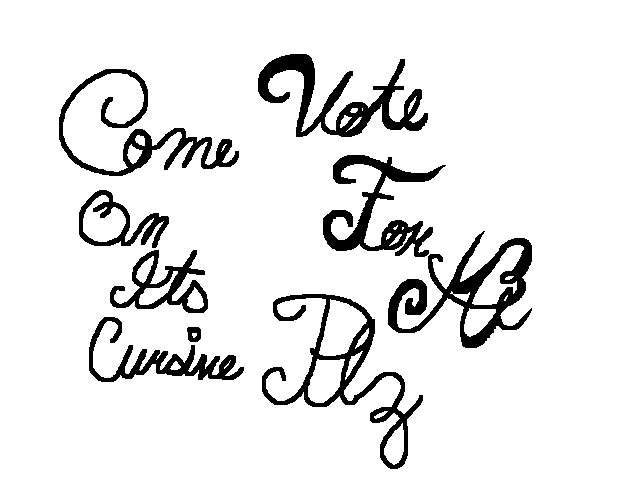 Come
On
Its
Cursive
Vote
For
Me
Plz